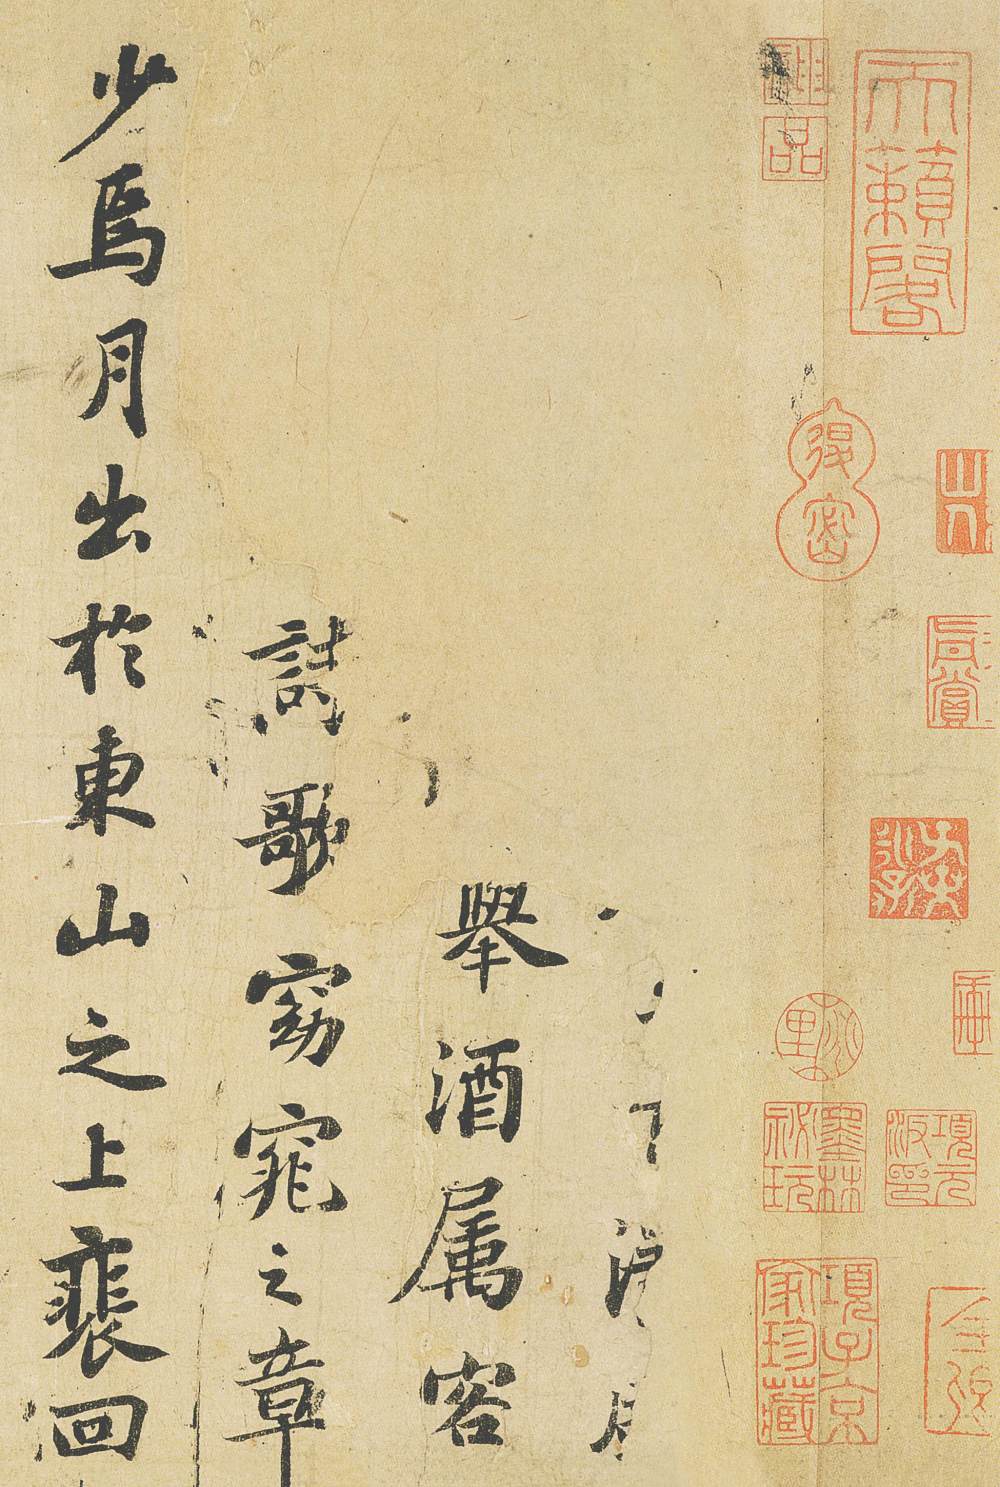 天籟閣
神品
退密
項元汴印
墨林祕玩
項子京家珍藏
舉酒属客
詩歌窈窕之章
少焉月出於東山之上裵回